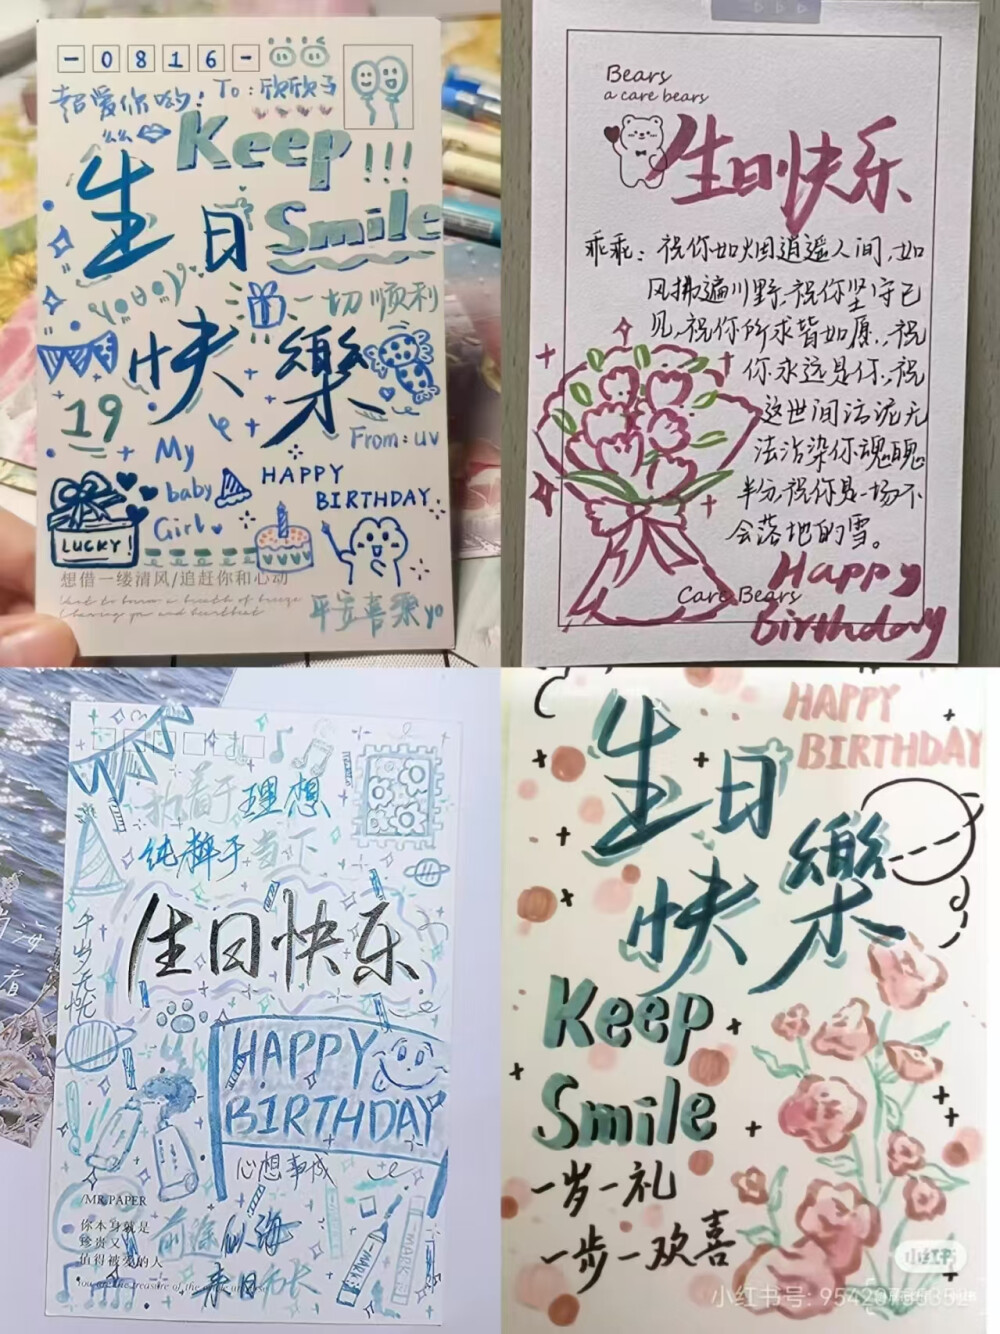 -0816-
超爱你哟! To:欣欣子
Keep
!!!
Smile
生日
yoooy
一切顺利
快樂
19
My
baby
Girl
From:uv
HAPPY
BIRTHDAY.
LUCKY!
想借一缕清风/追赶你和心动
平安喜乐yo
Bears
a care bears
生日快乐
乖乖:祝你如烟逍遥人间,如
风拂遍川野,祝你坚守己
见,祝你所求皆如愿,祝
你永远是你,祝
这世间污泥无
法沾染你魂魄
半分,祝你是一场不
会落地的雪。
Care Bears
Happy
Birthday
执着于理想
纯粹于当下
生日快乐
千岁无忧
HAPPY
BIRTHDAY
心想事成
MR.PAPER
你本身就是
珍贵又
值得被爱的人
前途似海
来日方长
MARK
MARK
HAPPY
BIRTHDAY
生日
快樂
Keep
Smile
一岁一礼
一步一欢喜
小红书